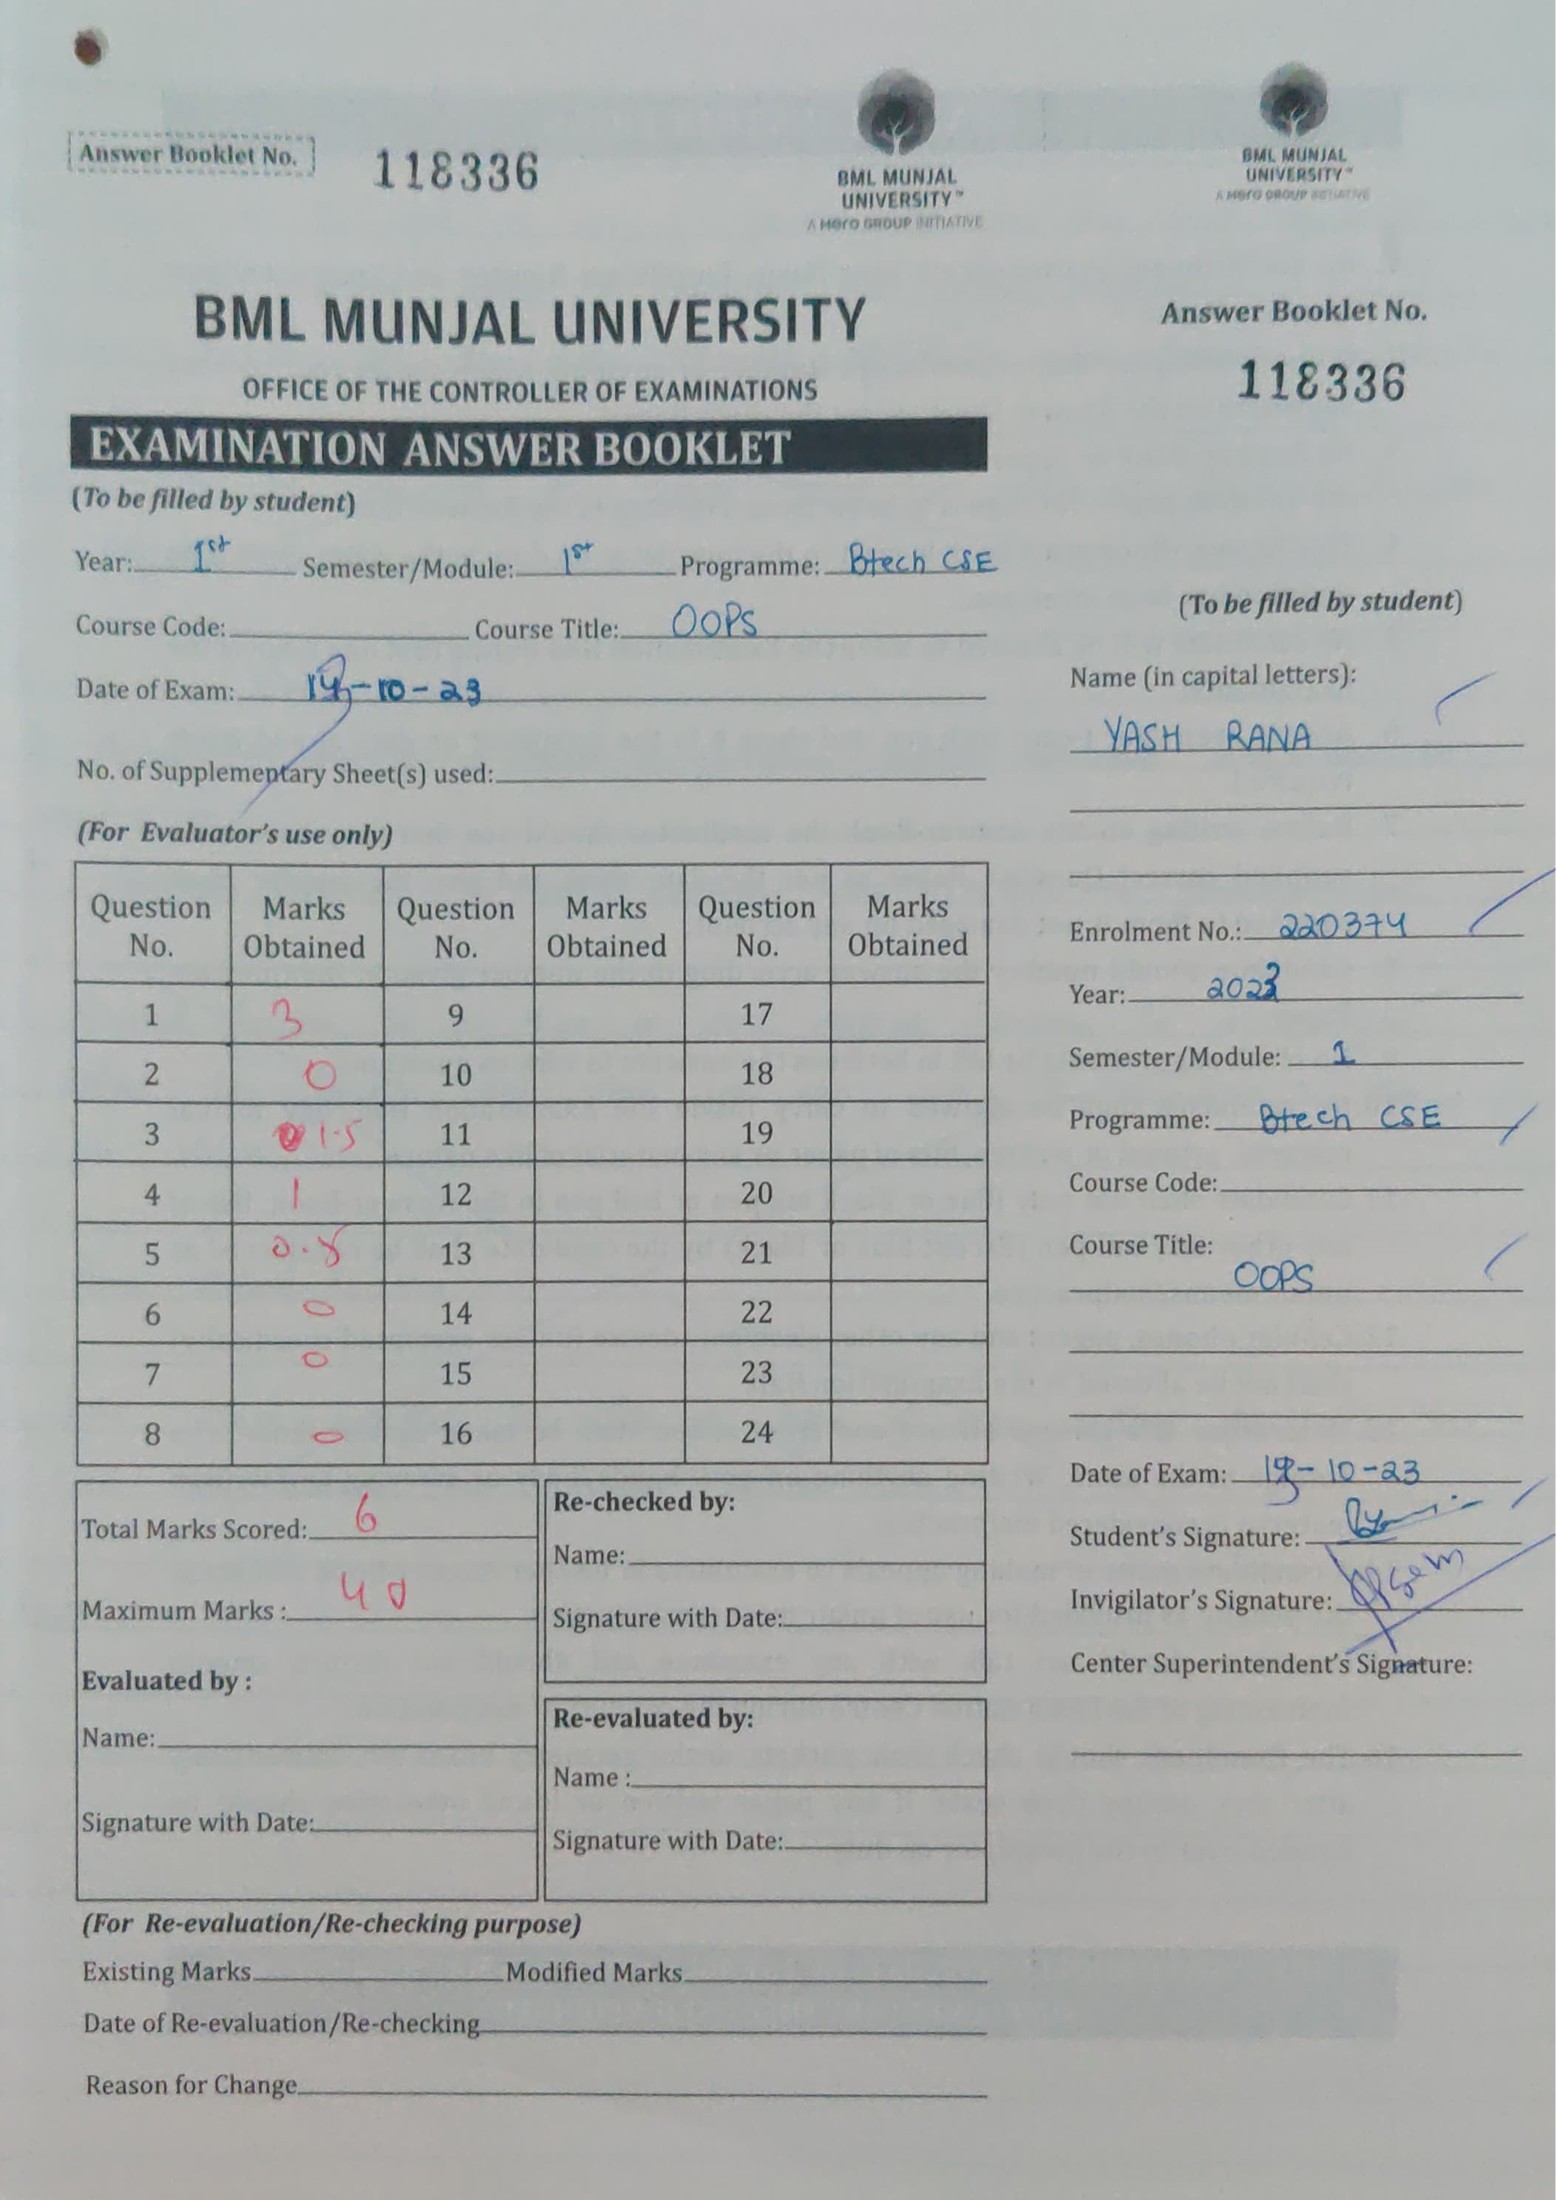 Answer Booklet No. 118336
BML MUNJAL
UNIVERSITY™
A Hero GROUP INITIATIVE
BML MUNJAL
UNIVERSITY™
A Hero GROUP INITIATIVE
BML MUNJAL UNIVERSITY
OFFICE OF THE CONTROLLER OF EXAMINATIONS
EXAMINATION ANSWER BOOKLET
(To be filled by student)
Year: 1st Semester/Module: 1st Programme: Btech CSE
Course Code: Course Title: OOPS
Date of Exam: -10-23
No. of Supplementary Sheet(s) used:
(For Evaluator's use only)
Question No. Marks Obtained Question No. Marks Obtained Question No. Marks Obtained
1 3 9 17
2 0 10 18
3 1.5 11 19
4 1 12 20
5 0.5 13 21
6 0 14 22
7 0 15 23
8 0 16 24
Total Marks Scored: 6
Maximum Marks : 40
Evaluated by :
Name:
Signature with Date:
Re-checked by:
Name:
Signature with Date:
Re-evaluated by:
Name :
Signature with Date:
(For Re-evaluation/Re-checking purpose)
Existing Marks Modified Marks
Date of Re-evaluation/Re-checking
Reason for Change
Answer Booklet No.
118336
(To be filled by student)
Name (in capital letters):
YASH RANA
Enrolment No.: 220374
Year: 2023
Semester/Module: 1
Programme: Btech CSE
Course Code:
Course Title:
OOPS
Date of Exam: -10-23
Student's Signature:
Invigilator's Signature:
Center Superintendent's Signature: